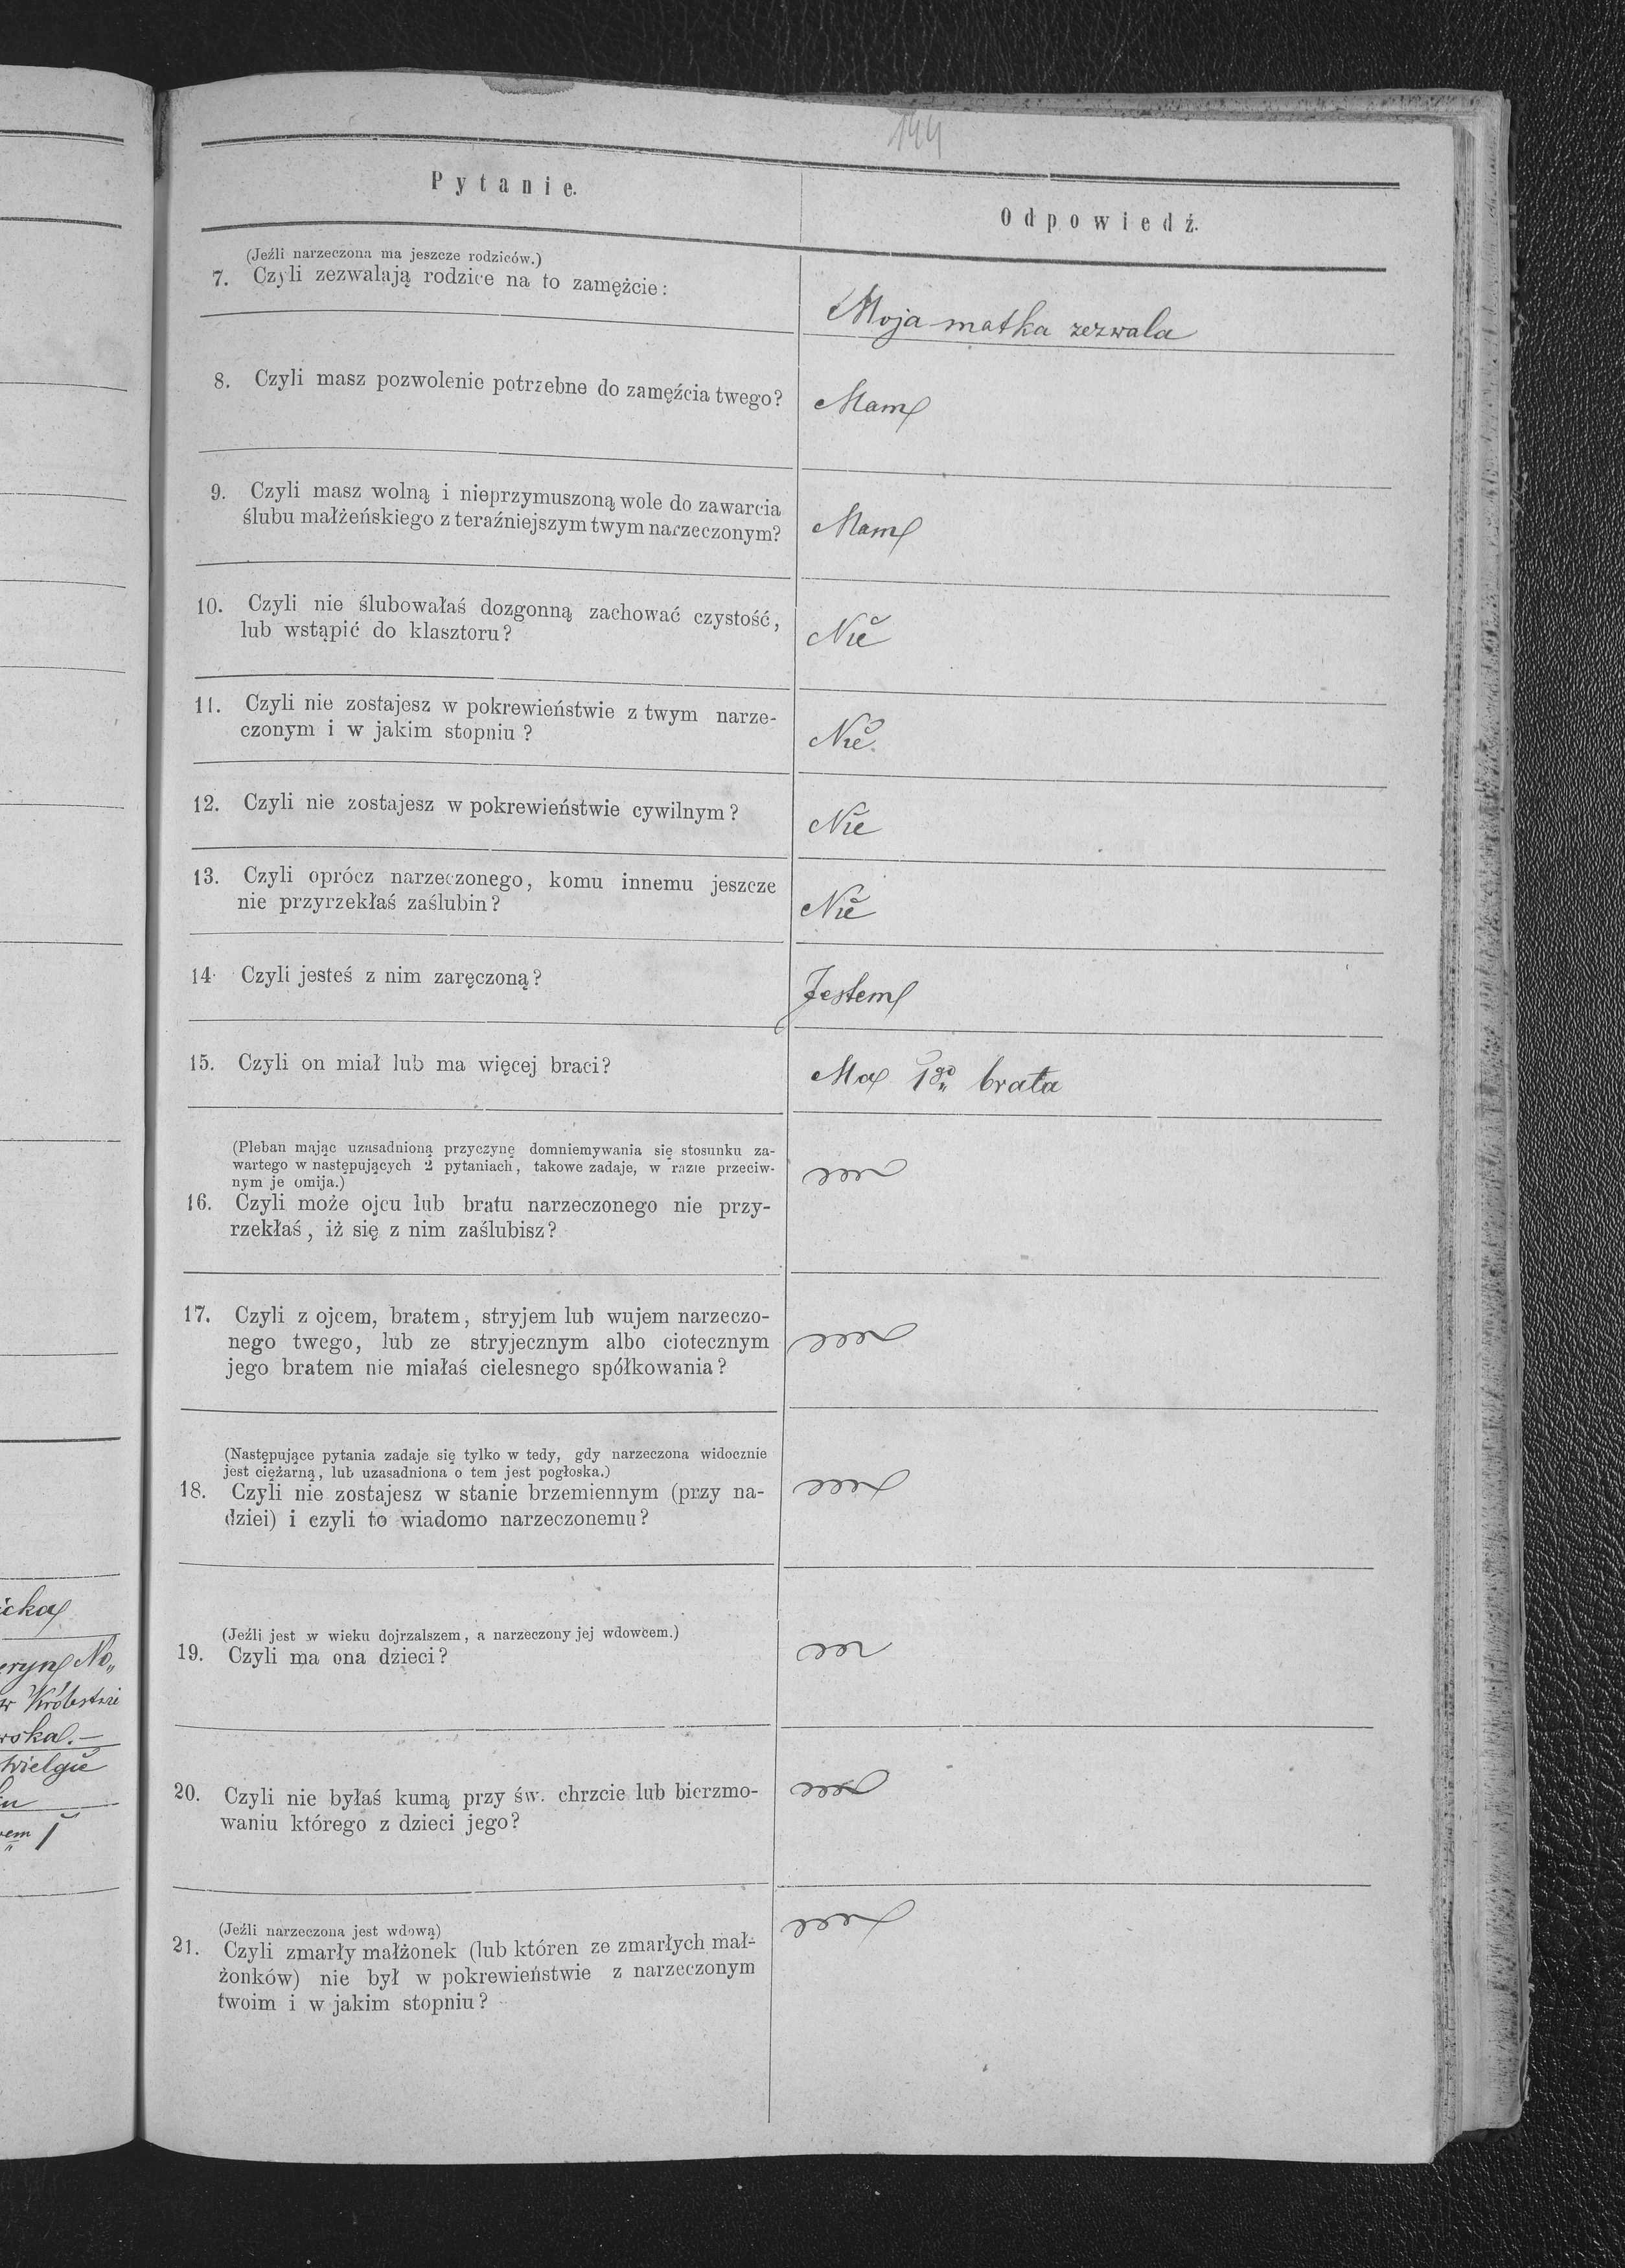 144
Pytanie.
Odpowiedź.
(Jeźli narzeczona ma jeszcze rodziców.)
7. Czyli zezwalają rodzice na to zamężcie:
Moja matka zezwala
8. Czyli masz pozwolenie potrzebne do zamęźcia twego?
Mam
9. Czyli masz wolną i nieprzymuszoną wole do zawarcia
ślubu małżeńskiego z teraźniejszym twym narzeczonym?
Mam
10. Czyli nie ślubowałaś dozgonną zachować czystość,
lub wstąpić do klasztoru?
Nie
11. Czyli nie zostajesz w pokrewieństwie z twym narze-
czonym i w jakim stopniu?
Nie
12. Czyli nie zostajesz w pokrewieństwie cywilnym?
Nie
13. Czyli oprócz narzeczonego, komu innemu jeszcze
nie przyrzekłaś zaślubin?
Nie
14. Czyli jesteś z nim zaręczoną?
Jestem
15. Czyli on miał lub ma więcej braci?
Ma 1go brata
(Pleban mając uzasadnioną przyczynę domniemywania się stosunku za-
wartego w następujących 2 pytaniach, takowe zadaje, w razie przeciw-
nym je omija.)
16. Czyli może ojcu lub bratu narzeczonego nie przy-
rzekłaś, iż się z nim zaślubisz?
17. Czyli z ojcem, bratem, stryjem lub wujem narzeczo-
nego twego, lub ze stryjecznym albo ciotecznym
jego bratem nie miałaś cielesnego spółkowania?
(Następujące pytania zadaje się tylko w tedy, gdy narzeczona widocznie
jest ciężarną, lub uzasadniona o tem jest pogłoska.)
18. Czyli nie zostajesz w stanie brzemiennym (przy na-
dziei) i czyli to wiadomo narzeczonemu?
(Jeźli jest w wieku dojrzalszem, a narzeczony jej wdowcem.)
19. Czyli ma ona dzieci?
20. Czyli nie byłaś kumą przy św. chrzcie lub bierzmo-
waniu którego z dzieci jego?
(Jeźli narzeczona jest wdową)
21. Czyli zmarły małżonek (lub któren ze zmarłych mał-
żonków) nie był w pokrewieństwie z narzeczonym
twoim i w jakim stopniu?